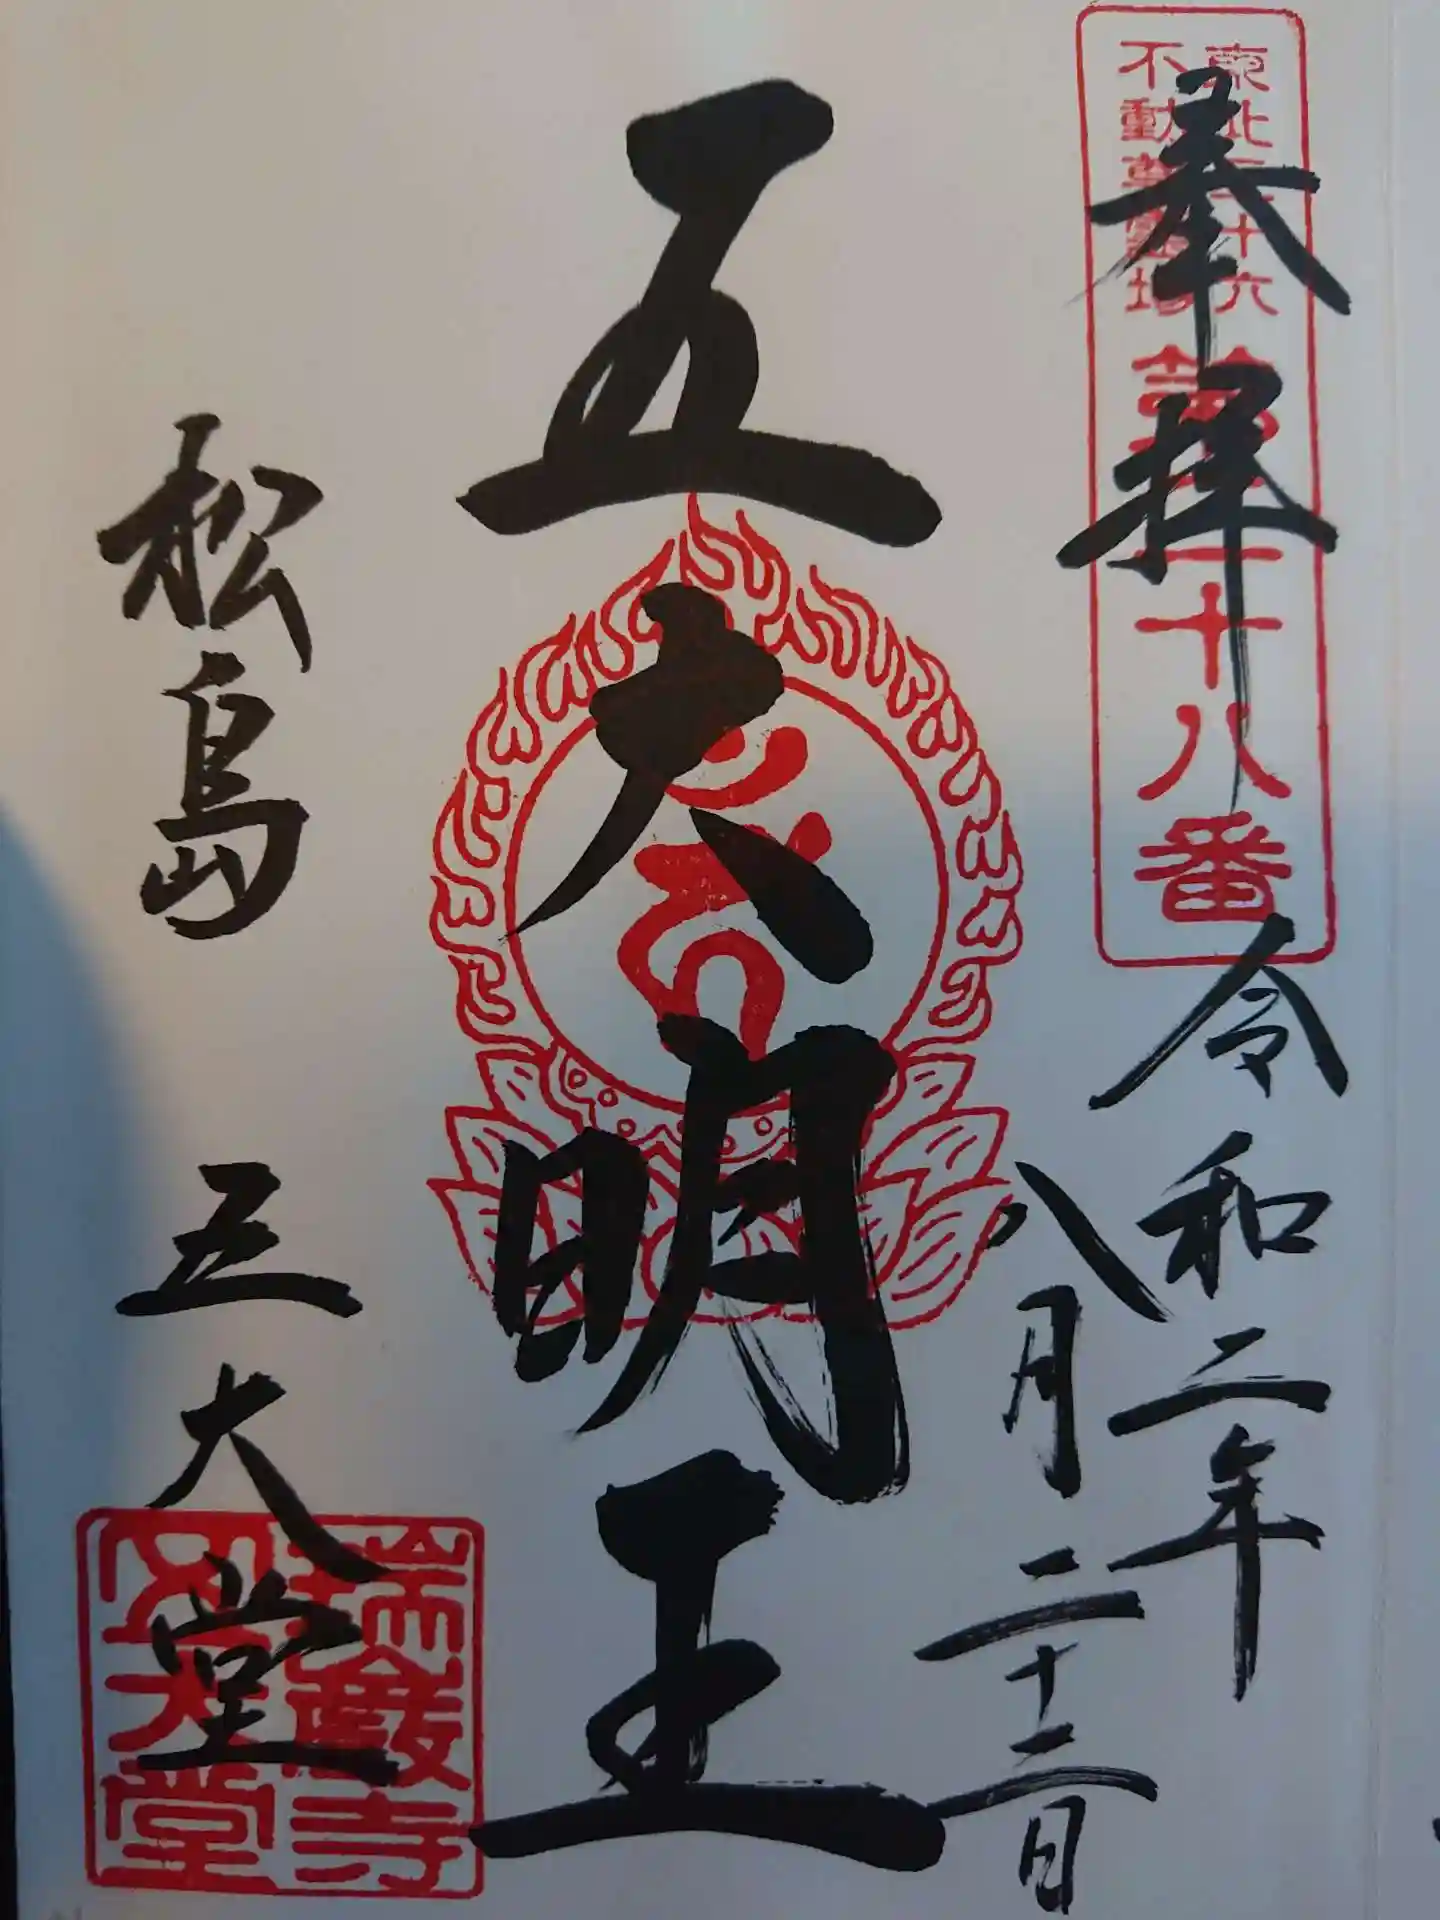 東北三十六
不動尊霊場
第二十八番
奉拝
令和二年
八月二十二日
五大明王
松島 五大堂
瑞巌寺
五大堂